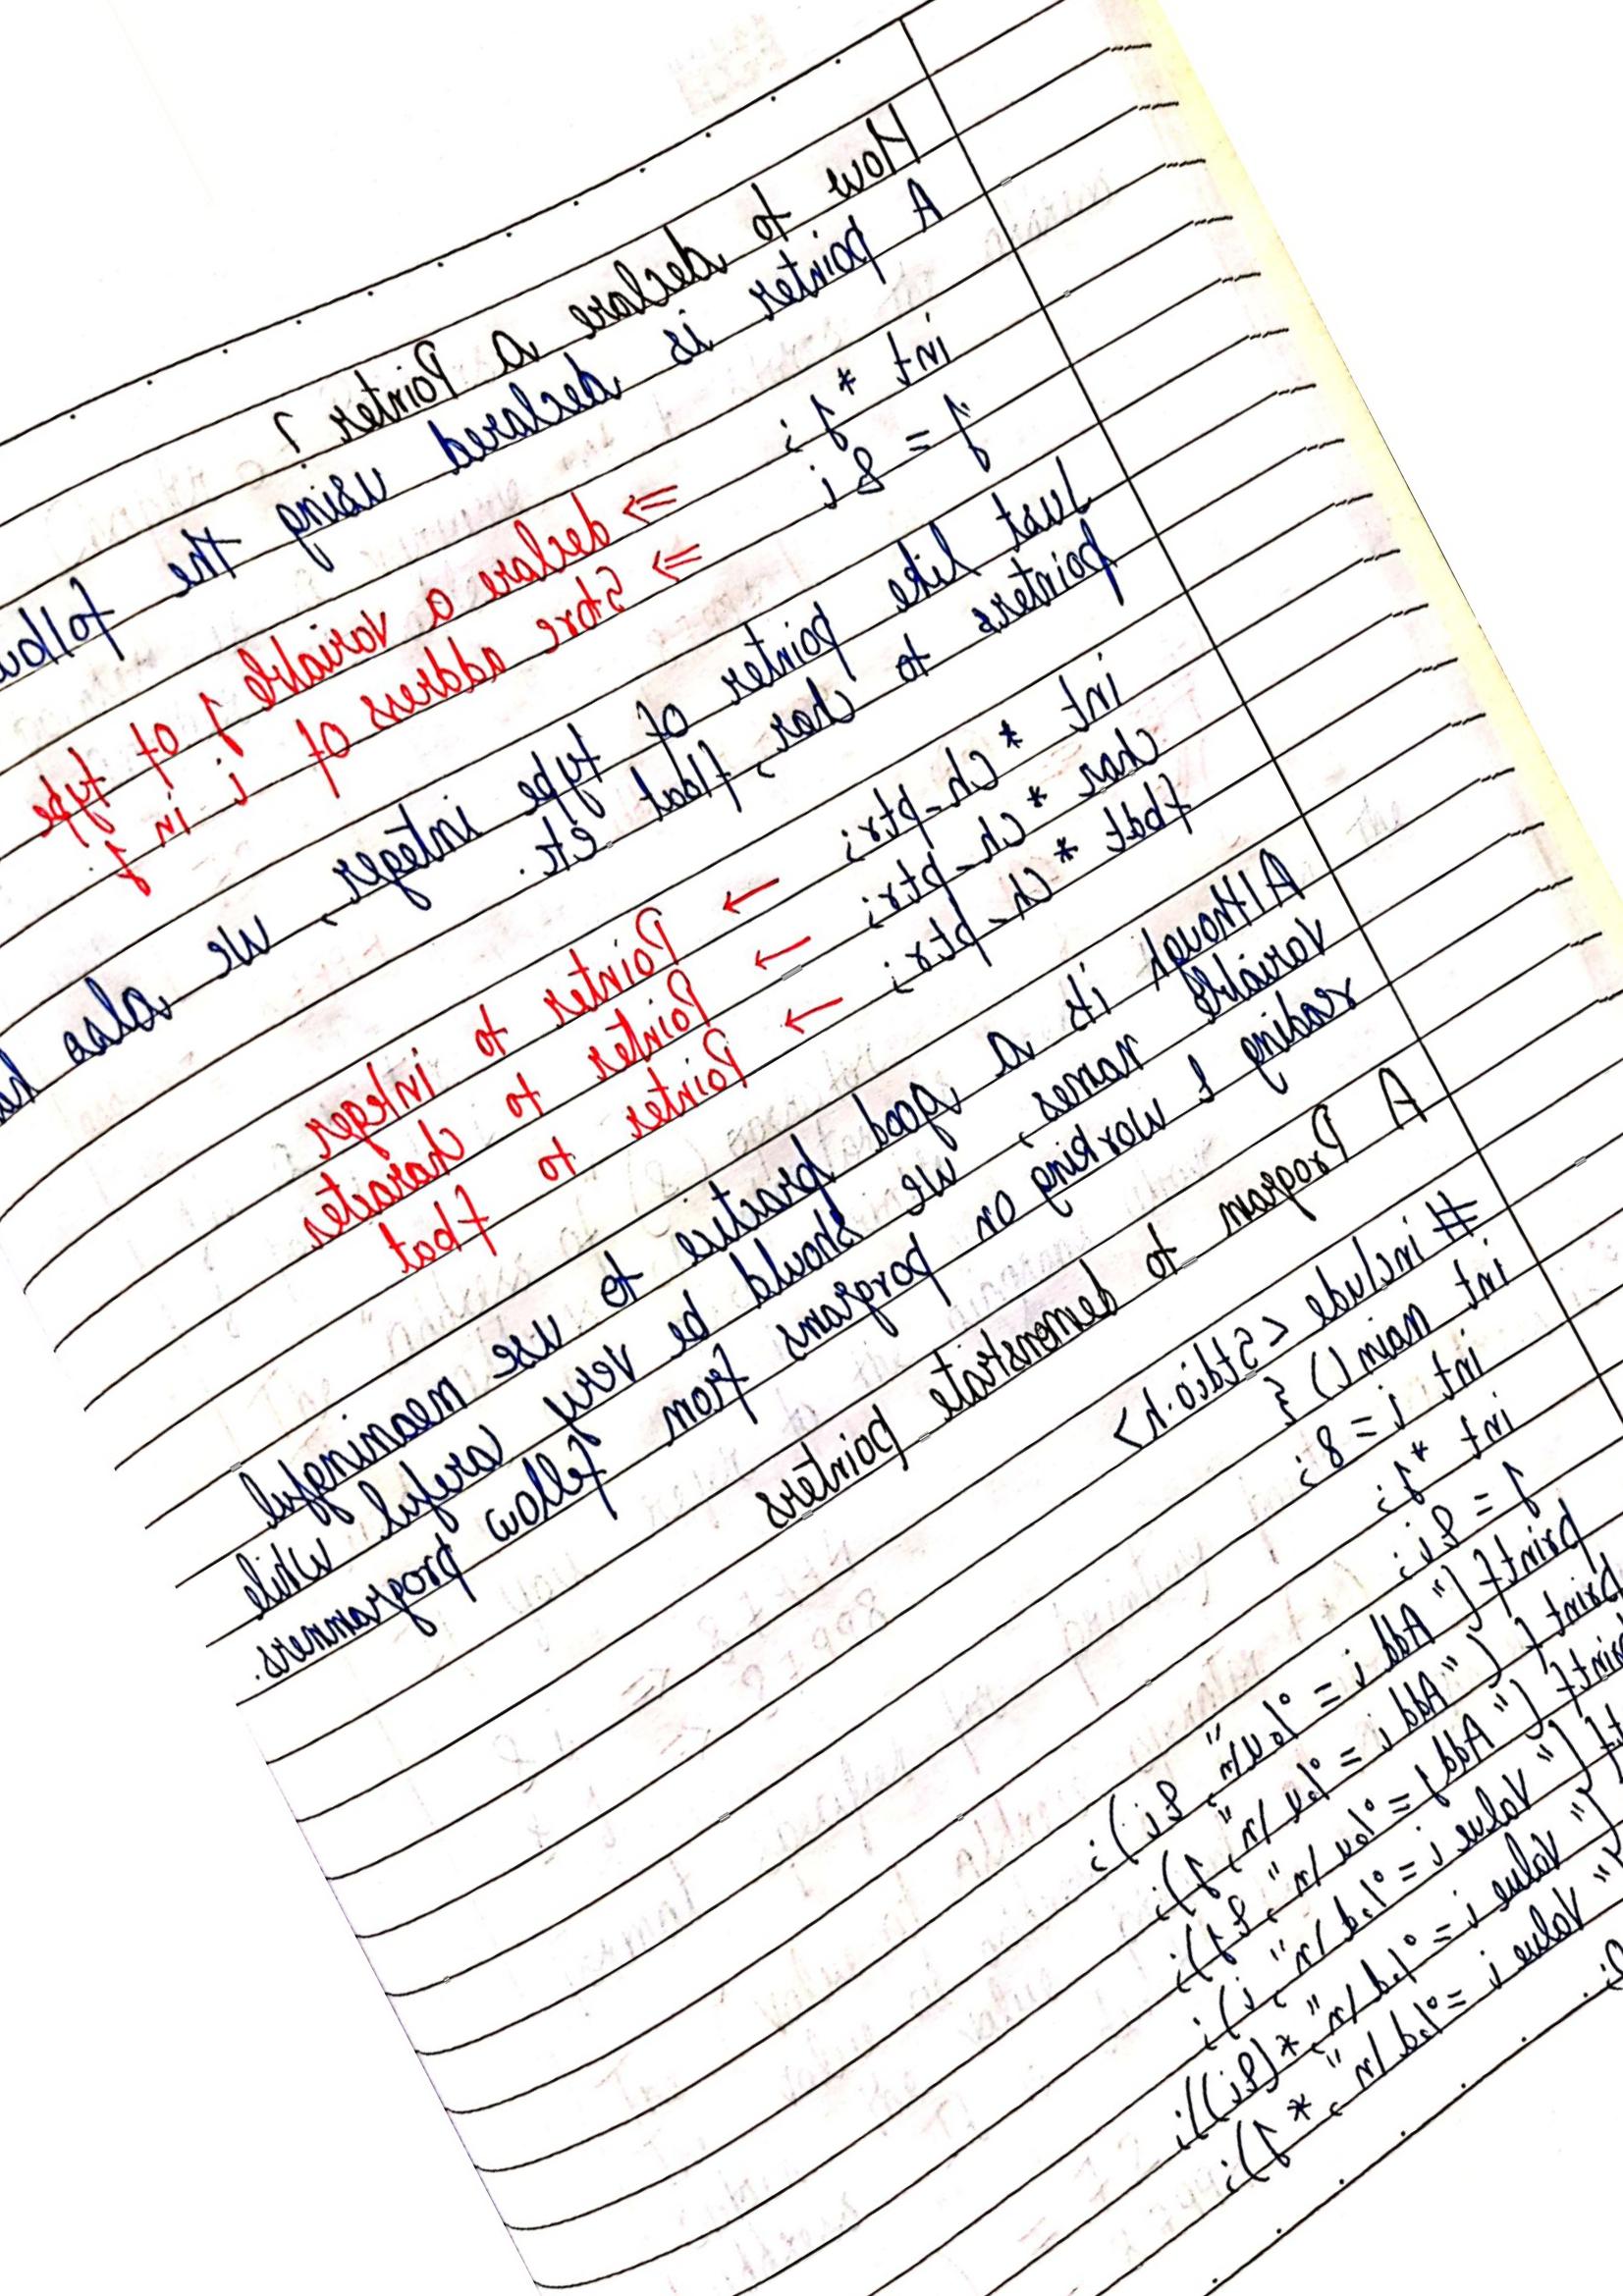 How to declare a Pointer ?
A pointer is declared using the follow
int *j ; => declare a variable j of type
j = & i => Store address of i in j
Just like pointer of type integer, we also ha
pointers to char, float etc.
int * Ch-ptr; → Pointer to integer
char * Ch-ptr; → Pointer to charactes
float * Ch-ptr; → Pointer to float
Although its a good practise to use meaningful
variables names, we should be very careful while
reading & working on porgrams from fellow programmers.
A Program to demonstrate pointers
# include <Stdio.h>
int main () {
int i = 8;
int *j;
j = &i;
printf ("Add i = %u/n", &i);
print f ("Add i = %u /n", j);
rintf ("Add j = %u /n", &j);
f ("Value i = %d /n", i);
(" value i = %d /n", *(&i));
" Value i = %d /n", * j);